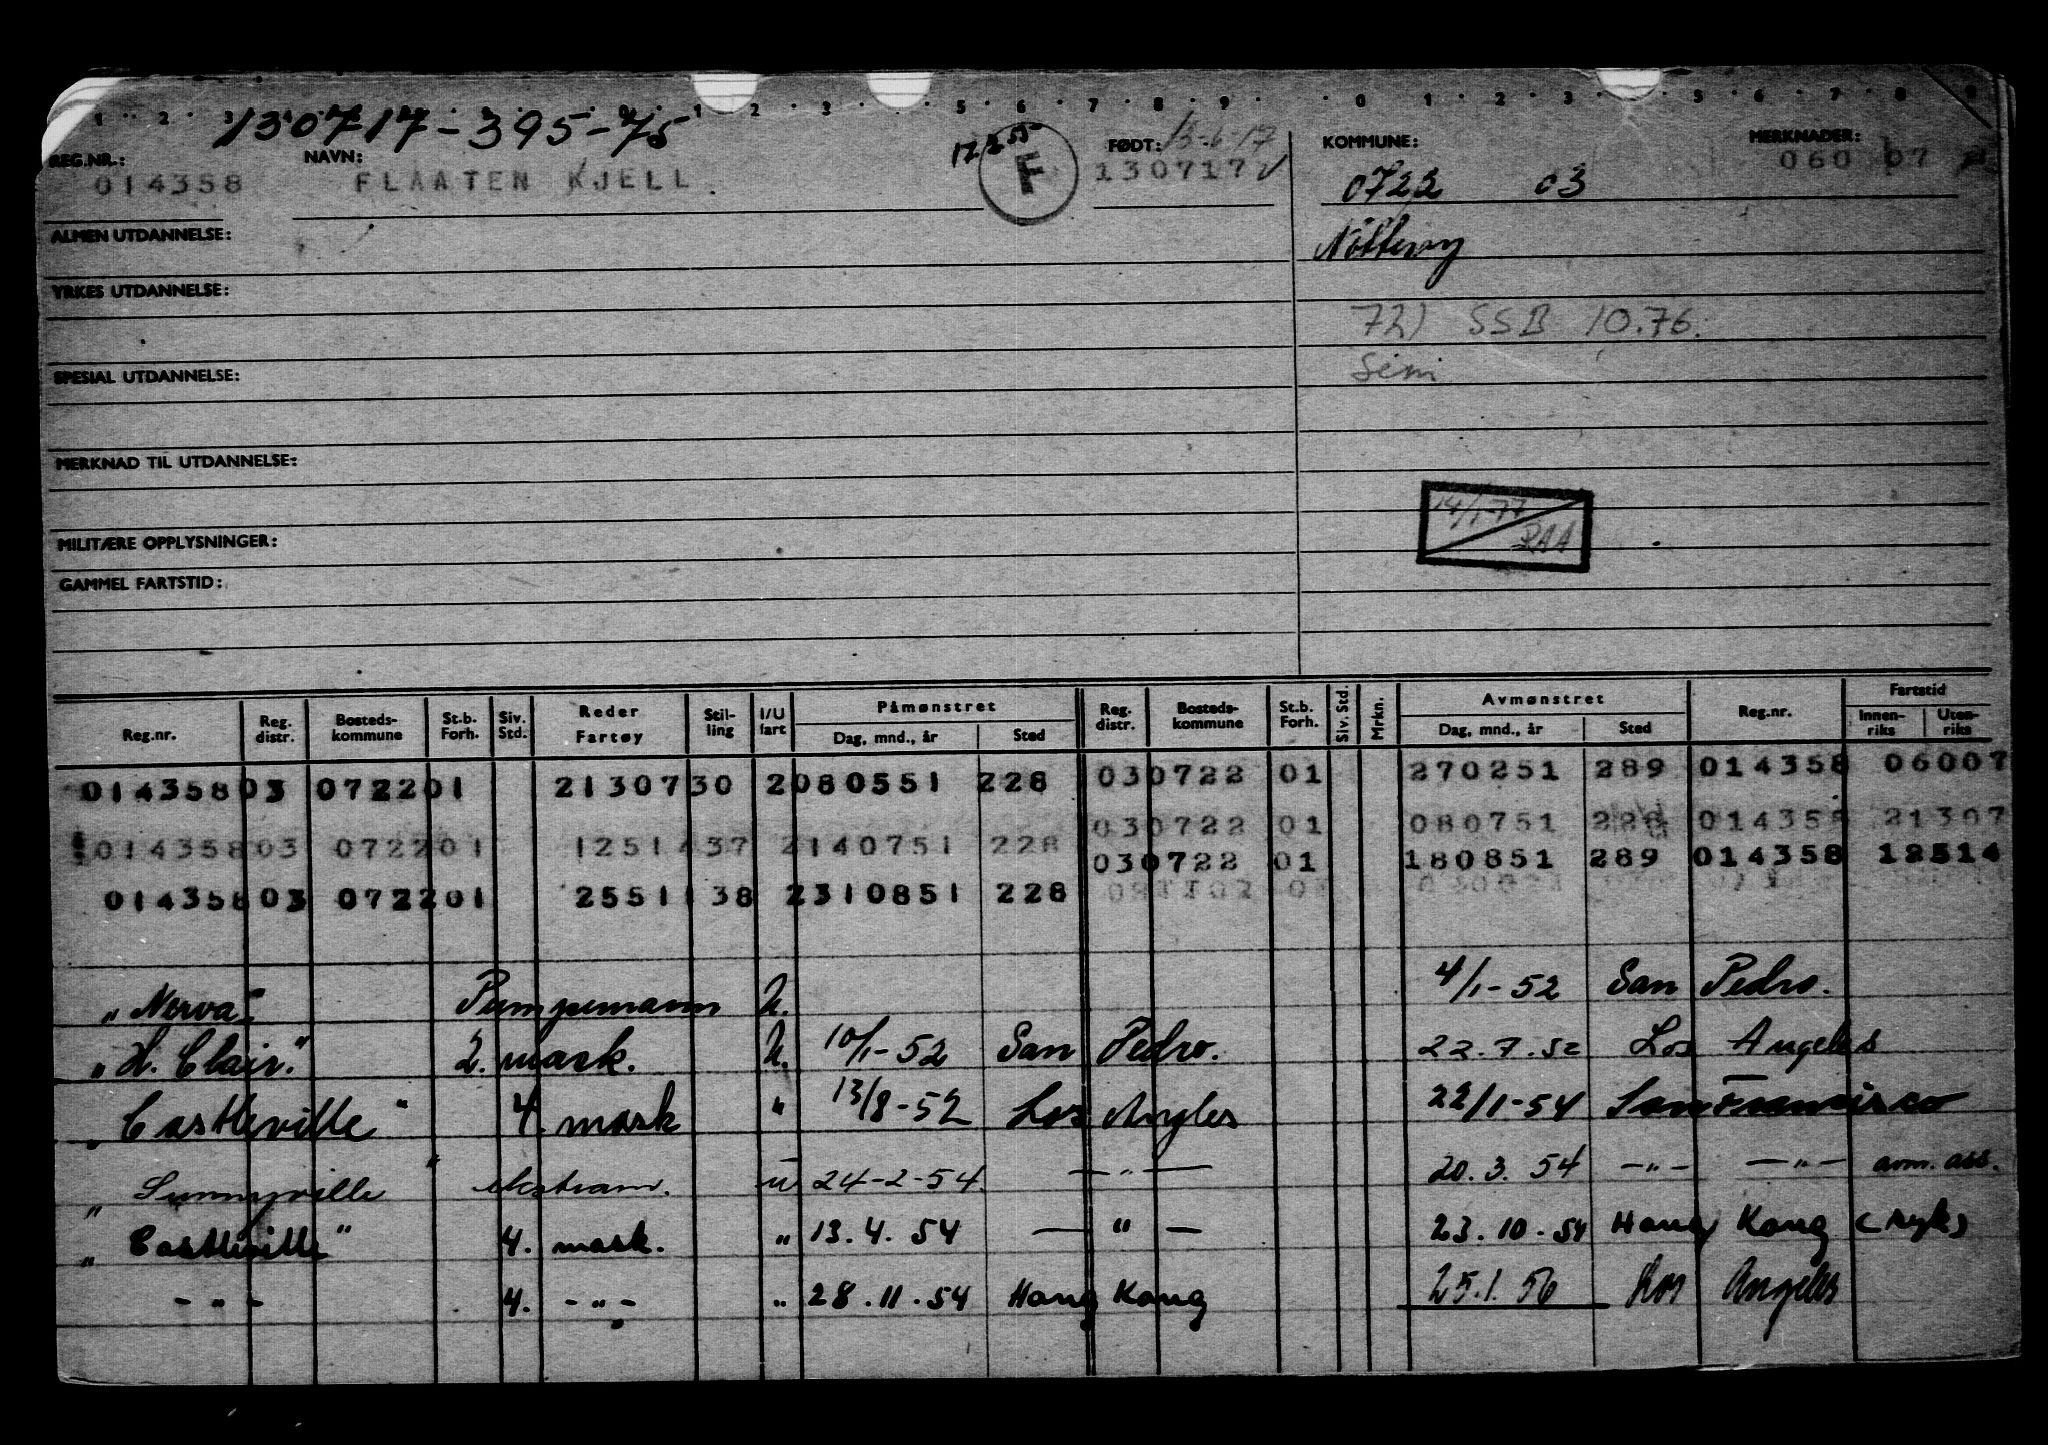 1 2 3 1 2 3 5 6 7 8 9 0 1 2 3 5 6 7 8 9
130717-395-75
REG.NR.: NAVN: 17.2.55 F FØDT: 13-6-17 KOMMUNE: MERKNADER:
014358 FLAATEN KJELL. 1307172 0722 03 060 07
ALMEN UTDANNELSE: Nøtterøy
YRKES UTDANNELSE:
72) SSB 10.76.
SPESIAL UTDANNELSE:
MERKNAD TIL UTDANNELSE:
14/1-77
RAA
MILITÆRE OPPLYSNINGER:
GAMMEL FARTSTID:
Reg.nr. Reg. distr. Bosteds-kommune St.b. Forh. Siv. Std. Reder Fartøy Stil-ling I/U fart Påmønstret Dag, mnd., år Sted Reg. distr. Bosteds-kommune St.b. Forh. Siv. Std. Mrkn. Avmønstret Dag, mnd., år Sted Reg.nr. Fartstid Innen-riks Uten-riks
014358 03 0722 01 21307 30 2 080551 228 03 0722 01 270251 289 014358 06007
03 0722 01 080751 228 014358 21307
014358 03 0722 01 12514 37 2 140751 228 03 0722 01 180851 289 014358 12514
014358 03 0722 01 25511 38 2 310851 228
"Nerva" Pumpemann U. 4/1-52 San Pedro.
"H. Clair." 2. mask. U. 10/1-52 San Pedro. 22.7.52 Los Angeles
"Castleville" 4. mask " 13/8-52 Los Angles 22/1-54 San Francisco
"Sunnyville" ekstram. u 24-2-54. —"— 20.3.54 —"— —"— avm. ass.
"Castleville" 4. mask. " 13.4.54 —"— 23.10.54 Hong Kong (syk)
-"- 4. -"- " 28.11.54 Hong Kong 25.1.56 Los Angeles